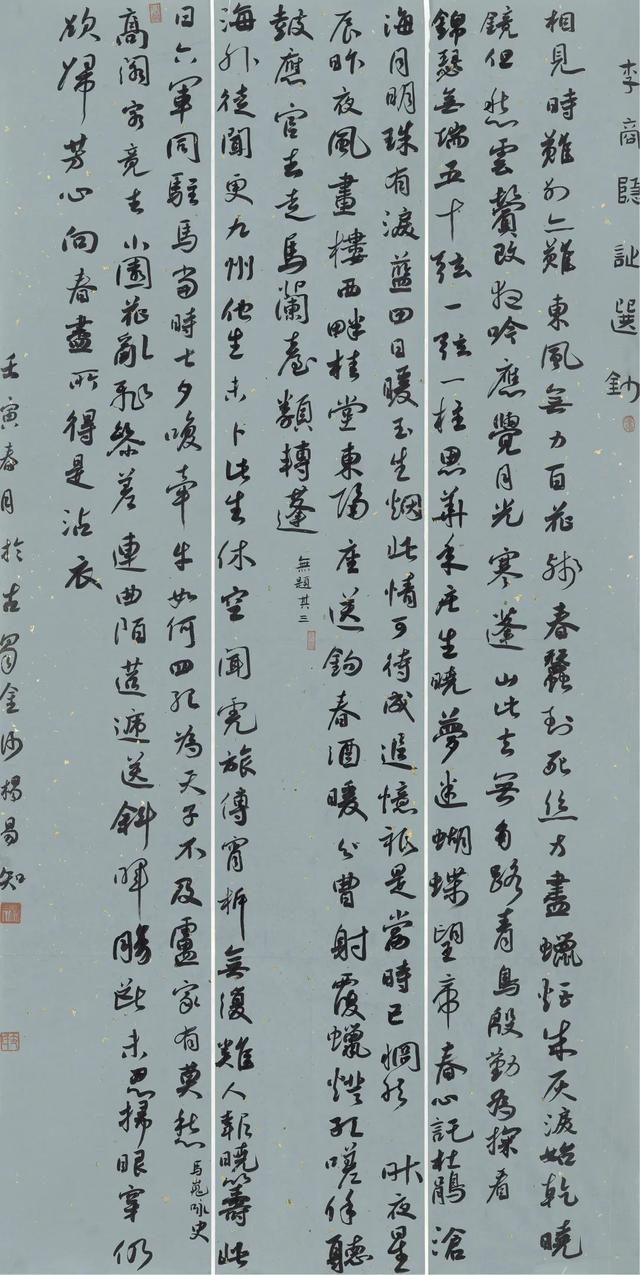 李商隱詩選鈔
相見時難別亦難東風無力百花殘春蠶到死絲方盡蠟炬成灰淚始乾曉
鏡但愁雲鬢改夜吟應覺月光寒蓬山此去無多路青鳥殷勤為探看
錦瑟無端五十弦一弦一柱思華年莊生曉夢迷蝴蝶望帝春心託杜鵑滄
海月明珠有淚藍田日暖玉生烟此情可待成追憶祇是當時已惘然 昨夜星
辰昨夜風畫樓西畔桂堂東隔座送鉤春酒暖分曹射覆蠟燈紅嗟余聽
鼓應官去走馬蘭臺類轉蓬
無題其三
海外徒聞更九州他生未卜此生休空聞虎旅傳宵柝無復雞人報曉籌此
日六軍同駐馬當時七夕笑牽牛如何四紀為天子不及盧家有莫愁
馬嵬詠史
高閣客竟去小園花亂飛參差連曲陌迢遞送斜暉腸斷未忍掃眼穿仍
欲歸芳心向春盡所得是沾衣
壬寅春月於古蜀金沙楊昜知